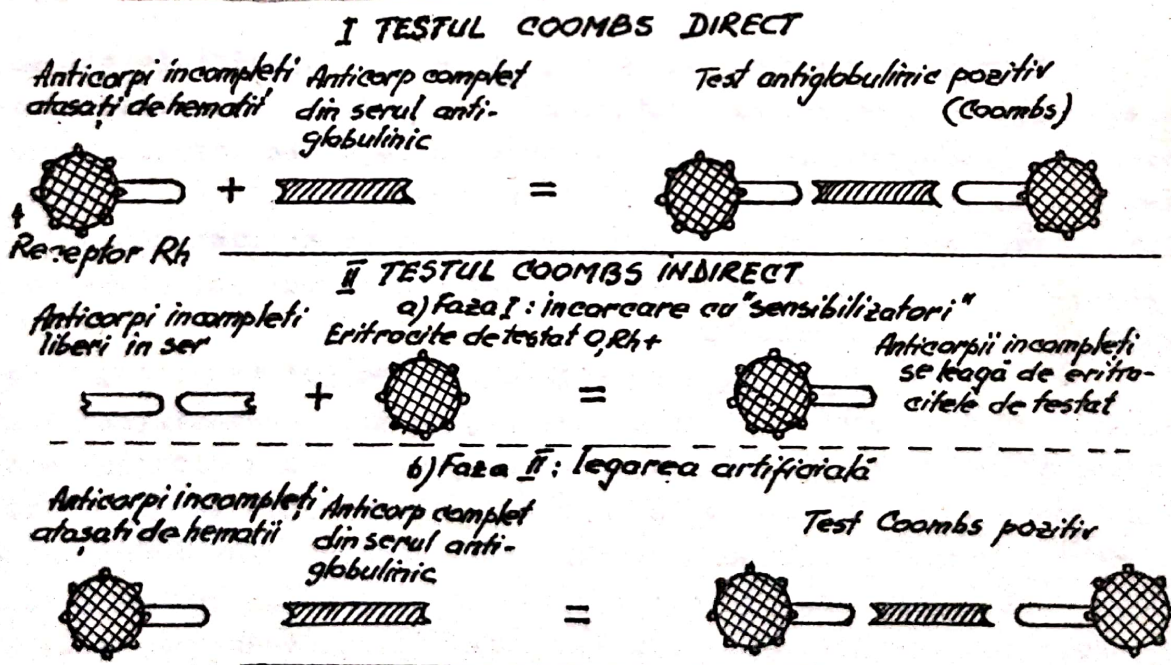 I TESTUL COOMBS DIRECT
Anticorpi incompleți
atașați de hematii
Anticorp complet
din serul anti-
globulinic
Test antiglobulinic pozitiv
(Coombs)
+
=
Receptor Rh
II TESTUL COOMBS INDIRECT
a) Faza I: incarcare cu "sensibilizatori"
Anticorpi incompleti
liberi in ser
Eritrocite de testat O, Rh+
Anticorpii incompleți
se leagă de eritro-
citele de testat
+
=
b) Faza II: legarea artificială
Anticorpi incompleți
atașați de hematii
Anticorp complet
din serul anti-
globulinic
Test Coombs pozitiv
=